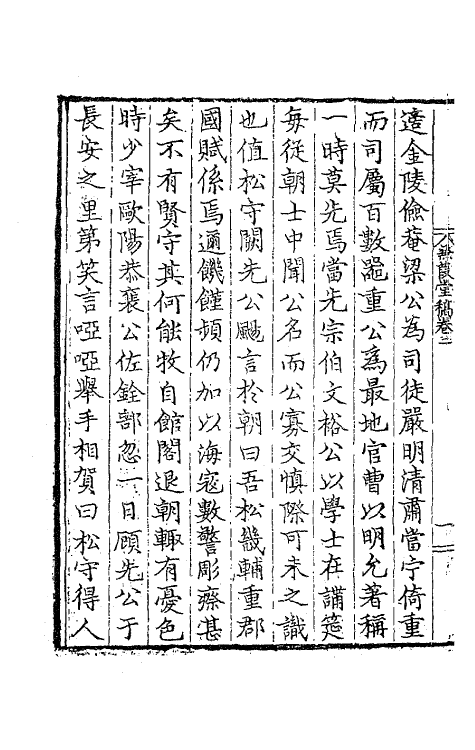 遼金陵儉菴梁公為司徒嚴明清肅當宁倚重
而司屬百數噐重公爲最地官曹以明允著稱
一時莫先焉當先宗伯文裕公以學士在講筵
每從朝士中聞公名而公寡交慎際可未之識
也值松守闕先公颺言於朝曰吾松畿輔重郡
國賦係焉邇饑饉頻仍加以海寇數警彫瘵甚
矣不有賢守其何能牧自館閣退朝輙有憂色
時少宰歐陽恭襄公佐銓部忽一日顧先公于
長安之里第笑言啞啞舉手相賀曰松守得人
堂稿卷二